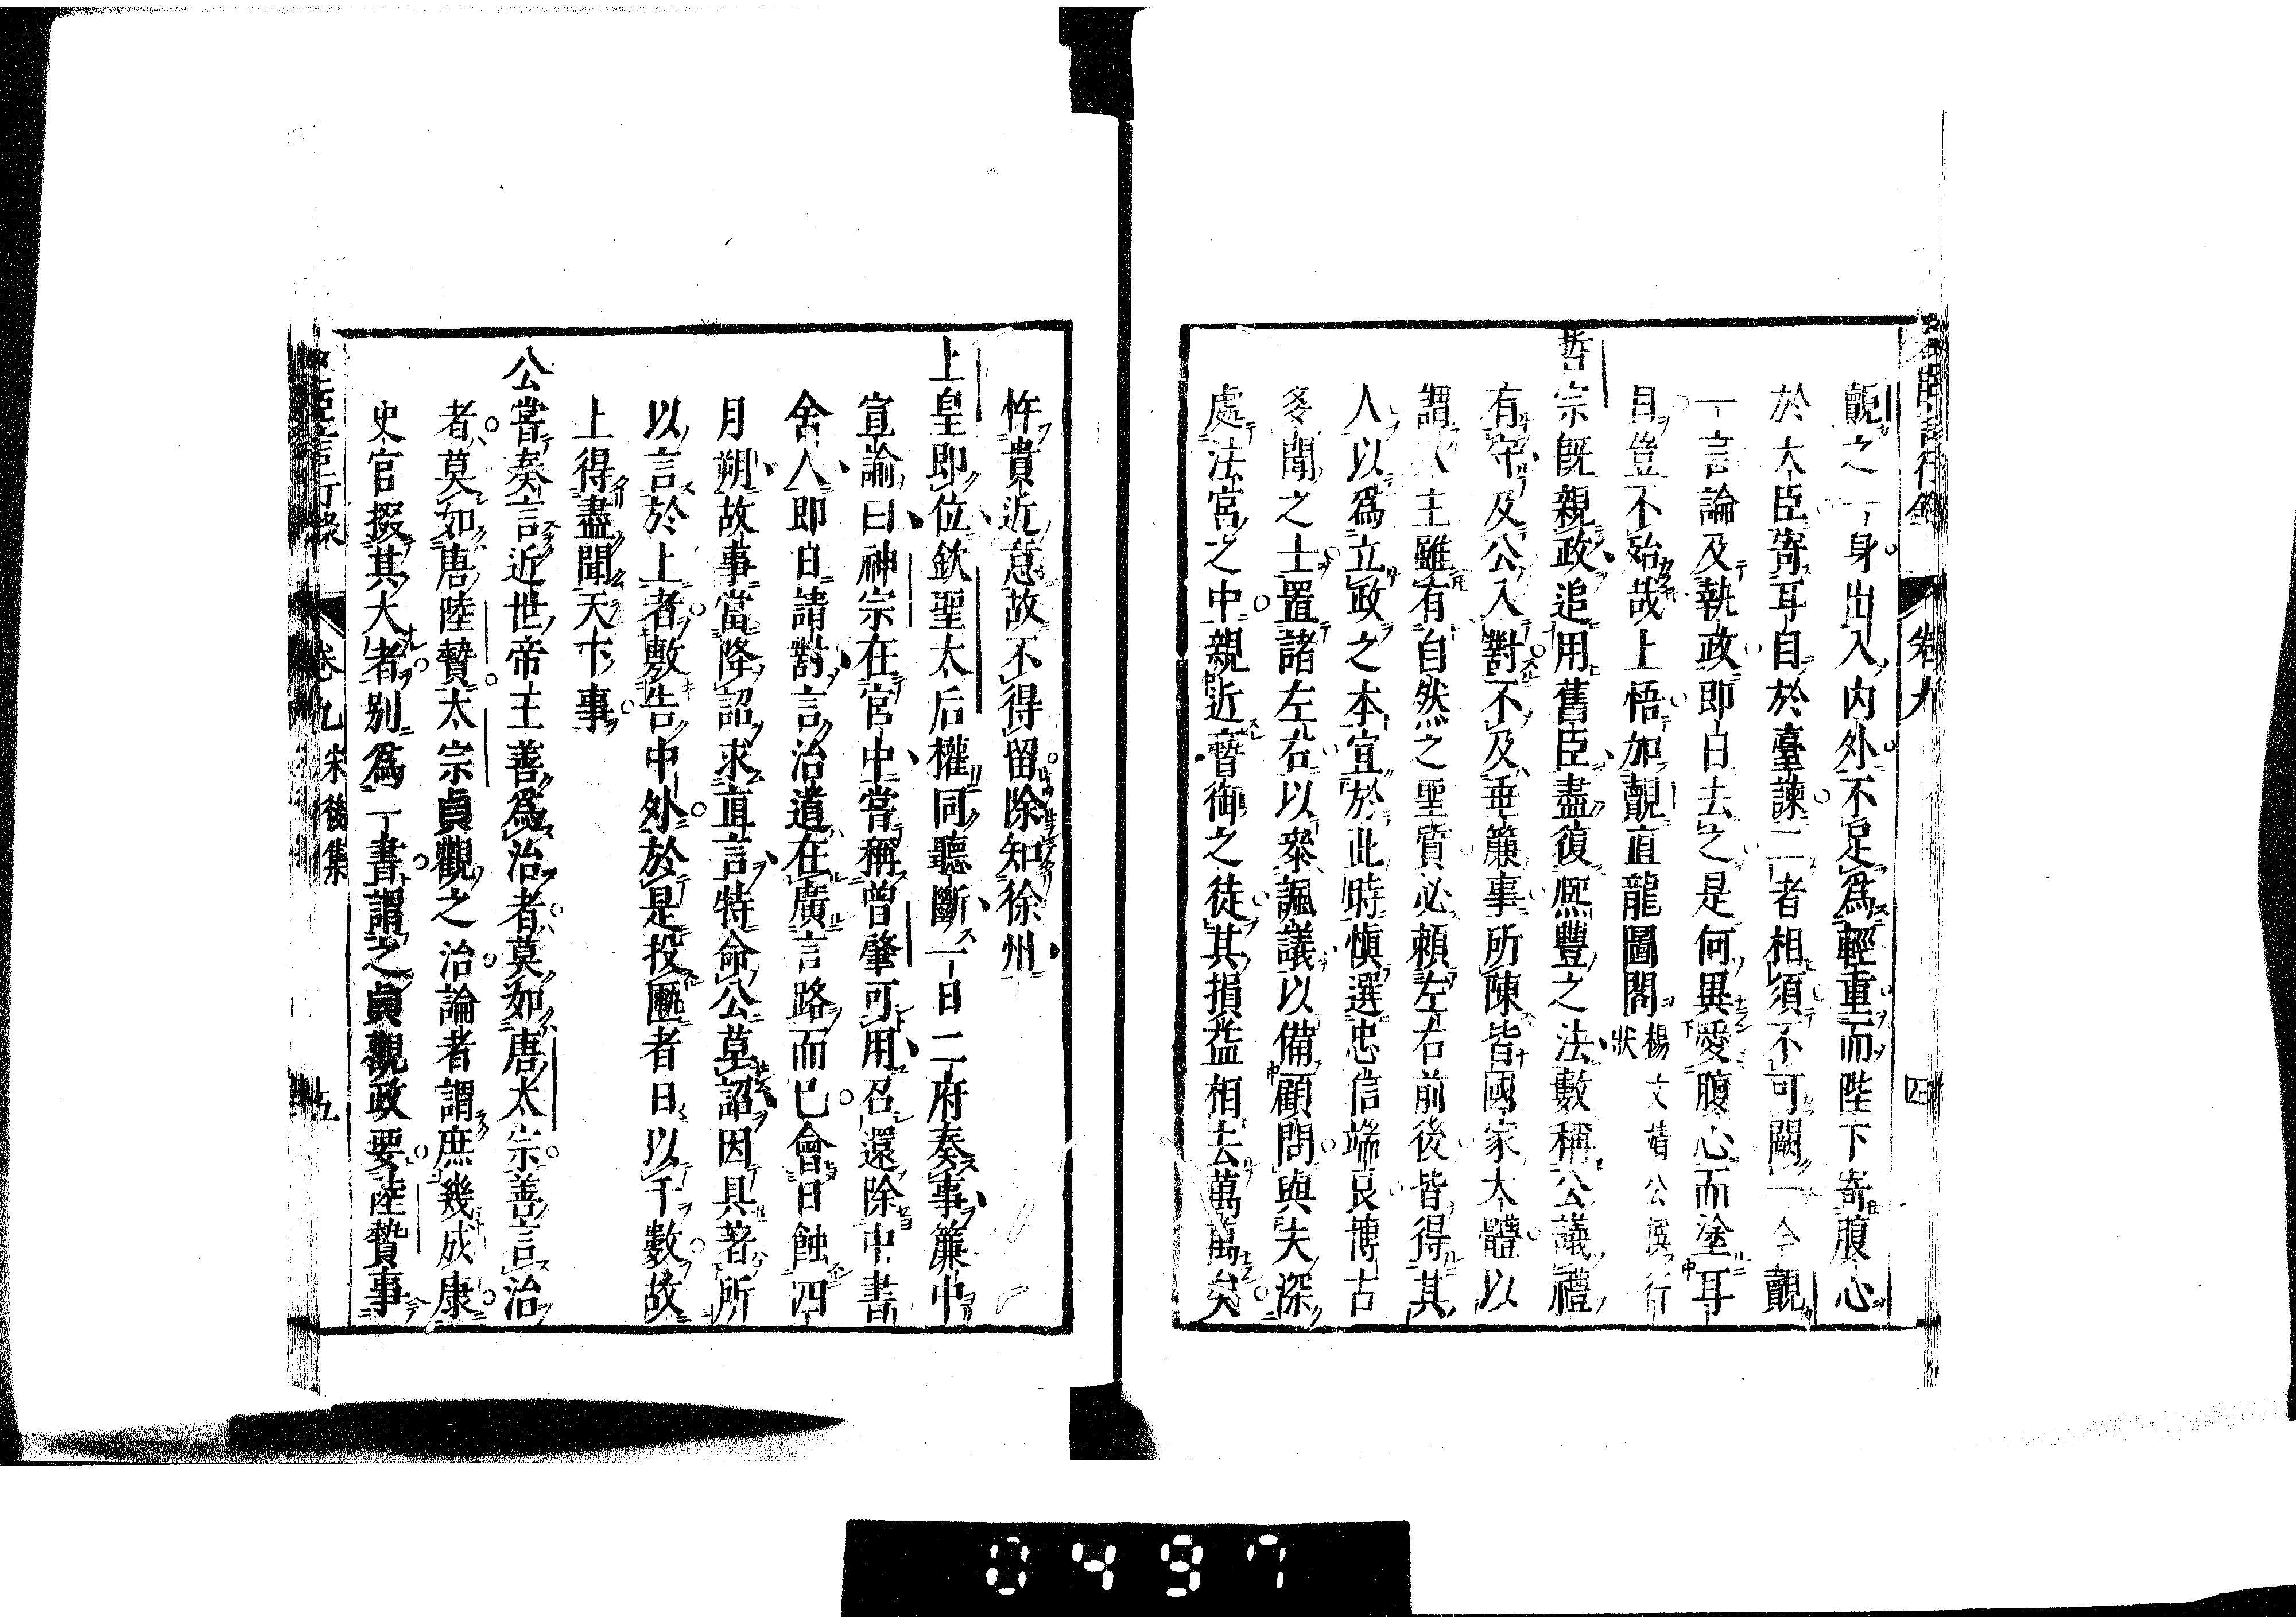 名臣言行錄 卷九 四
覿之一身出入内外不足爲輕重而陛下寄腹心
於大臣寄耳目於臺諫二者相須不可闕一今覿
一言論及執政即日去之是何異愛腹心而塗耳
目豈不殆哉上悟加覿直龍圖閣楊文靖公撰行狀
哲宗既親政追用舊臣盡復熈豐之法數稱公議禮
有守及公入對不及垂簾事所陳皆國家大體以
謂人主雖有自然之聖質必賴左右前後皆得其
人以爲立政之本宜於此時愼選忠信端良博古
多聞之士置諸左右以叅諷議以備顧問與夫深
處法宮之中親近暬御之徒其損益相去萬萬矣
忤貴近意故不得留除知徐州
上皇即位欽聖太后權同聽斷一日二府奏事簾中
宣諭曰神宗在宮中嘗稱曾肇可用召還除中書
舍人即日請對言治道在廣言路而已會日蝕四
月朔故事當降詔求直言特命公草詔因具著所
以言於上者敷告中外於是投匭者日以千數故
上得盡聞天下事
公嘗奏言近世帝王善爲治者莫如唐太宗善言治
者莫如唐陸贄太宗貞觀之治論者謂庶幾成康
史官掇其大者別爲一書謂之貞觀政要陸贄事
名臣言行錄 卷九 宋後集 五
0497